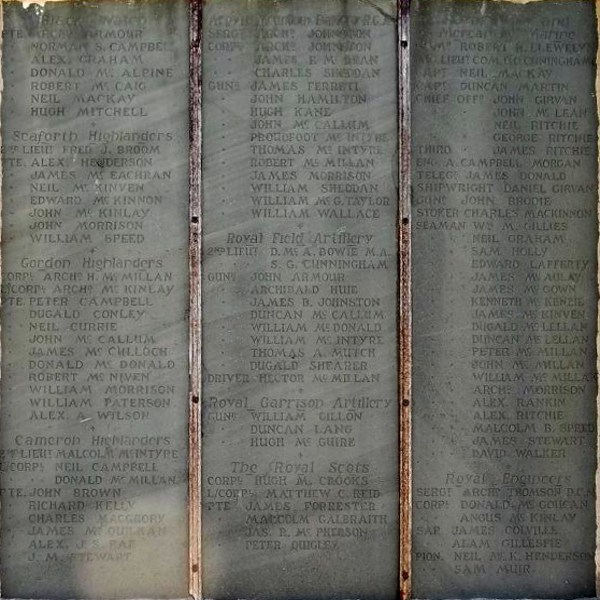 Black Watch
PTE. ARCHD ARMOUR
NORMAN S. CAMPBELL
ALEX. GRAHAM
DONALD Mc ALPINE
ROBERT Mc CAIG
NEIL MACKAY
HUGH MITCHELL
Seaforth Highlanders
2ND LIEUT FRED J. BROOM
PTE. ALEX. HENDERSON
JAMES Mc EACHRAN
NEIL Mc KINVEN
EDWARD Mc KINNON
JOHN Mc KINLAY
JOHN MORRISON
WILLIAM SPEED
Gordon Highlanders
CORPL ARCHD H. Mc MILLAN
L/CORPL ARCHD Mc KINLAY
PTE. PETER CAMPBELL
DUGALD CONLEY
NEIL CURRIE
JOHN Mc CALLUM
JAMES Mc CULLOCH
DONALD Mc DONALD
ROBERT Mc NIVEN
WILLIAM MORRISON
WILLIAM PATERSON
ALEX. A. WILSON
Cameron Highlanders
2ND LIEUT MALCOLM Mc INTYRE
L/CORPL NEIL CAMPBELL
DONALD Mc MILLAN
PTE. JOHN BROWN
RICHARD KELLY
CHARLES MACGRORY
JAMES Mc QUILKAN
ALEX. J. S. RAE
J. M. STEWART
SERGT ARCHD JOHNSTON
CORPL ARCHD JOHNSTON
JAMES F. M. BEAN
CHARLES SHEDDAN
GUNR JAMES FERRETI
JOHN HAMILTON
HUGH KANE
JOHN Mc CALLUM
PROUDFOOT Mc INTYRE
THOMAS Mc INTYRE
ROBERT Mc MILLAN
JAMES MORRISON
WILLIAM SHEDDAN
WILLIAM Mc G. TAYLOR
WILLIAM WALLACE
Royal Field Artillery
2ND LIEUT D. Mc A. BOWIE M.A.
S. G. CUNNINGHAM
GUNR JOHN ARMOUR
ARCHIBALD HUIE
JAMES B. JOHNSTON
DUNCAN Mc CALLUM
WILLIAM Mc DONALD
WILLIAM Mc INTYRE
THOMAS A. MUTCH
DUGALD SHEARER
DRIVER HECTOR Mc MILLAN
Royal Garrison Artillery
GUNR WILLIAM DILLON
DUNCAN LANG
HUGH Mc GUIRE
The Royal Scots
CORPL HUGH M. CROOKS
L/CORPL MATTHEW C. REID
PTE JAMES FORRESTER
MALCOLM GALBRAITH
JAS. R. Mc PHERSON
PETER QUIGLEY
and
Mercantile Marine
ROBERT H. LLEWELYN
CUNNINGHAM
CAPT NEIL MACKAY
CAPT DUNCAN MARTIN
CHIEF OFFR JOHN GIRVAN
JOHN Mc LEAN
NEIL RITCHIE
GEORGE RITCHIE
THIRD JAMES RITCHIE
ENG. A. CAMPBELL MORGAN
TELEGT JAMES DONALD
SHIPWRIGHT DANIEL GIRVAN
GUNR JOHN BRODIE
STOKER CHARLES MACKINNON
SEAMAN WM Mc GILLIES
NEIL GRAHAM
SAM HOLLY
EDWARD LAFFERTY
JAMES Mc AULAY
JAMES Mc GOWN
KENNETH Mc KENZIE
JAMES Mc KINVEN
DUGALD Mc LELLAN
DUNCAN Mc LELLAN
PETER Mc MILLAN
JOHN Mc MILLAN
WILLIAM Mc MILLAN
ARCHD MORRISON
ALEX. RANKIN
ALEX. RITCHIE
MALCOLM B. SPEED
JAMES STEWART
DAVID WALKER
Royal Engineers
SERGT ARCHD THOMSON D.C.M.
CORPL DONALD Mc GOUGAN
ANGUS Mc KINLAY
SAP. JAMES COLVILLE
ADAM GILLESPIE
PION. NEIL Mc K. HENDERSON
SAM MUIR